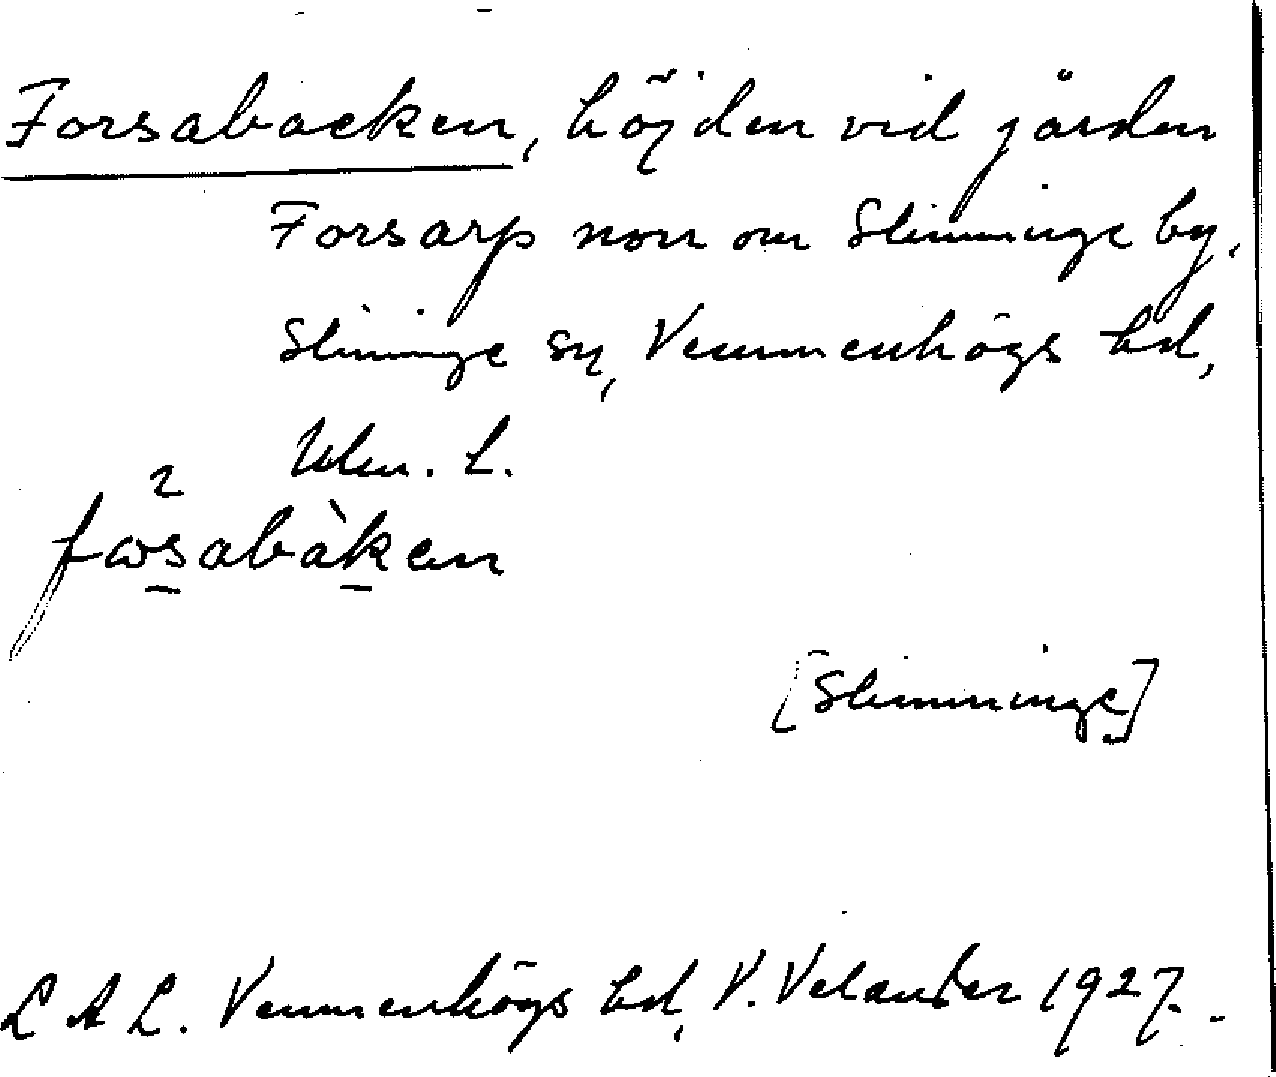 Forsabacken, höjden vid gården
Forsarp norr om Slimminge by,
Slimminge sn, Vemmenhögs hd,
Mlm. L.
2
fωsabàken
[Slimminge]
L A L. Vemmenhögs hd, V. Velander 1927.